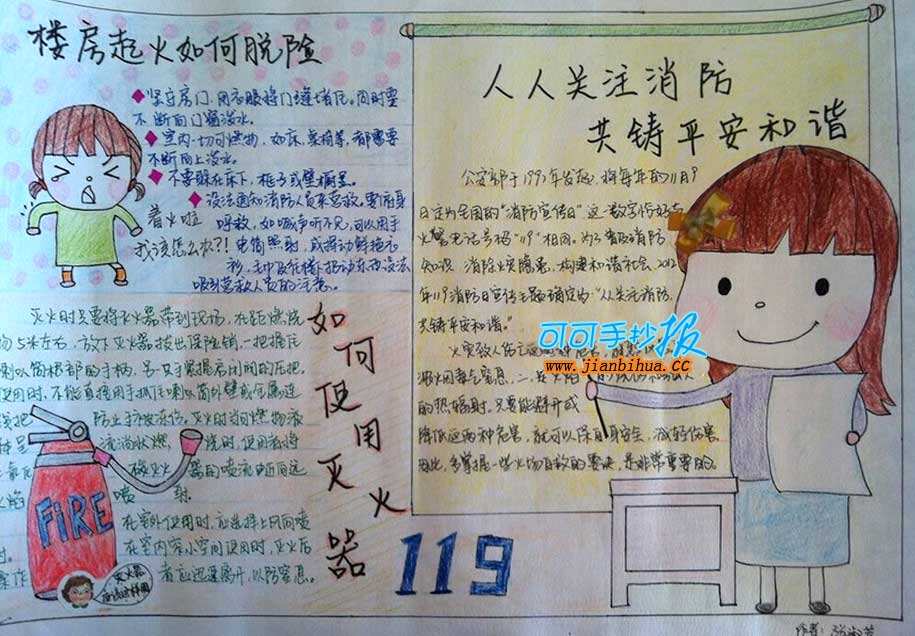 楼房起火如何脱险
坚守房门,用衣服将门缝堵住。同时要
不断向门窗泼水。
室内一切可燃物,如床、桌椅等,都需要
不断向上泼水。
不要躲在床下,桃子或壁橱里。
设法通知消防人员来营救。要俯身
呼救,如喊声听不见,可以用手
电筒照射,或挥动鲜艳衣
着火啦
我该怎么办?!
吸引营救人员的注意。
人人关注消防
共铸平安和谐
公安部于1992年发起,将每年的11月9
日定为全国的"消防宣传日"这一数字恰好与
火警电话号码"119"相同。为了增强消防
知识,消除火灾隐患,构建和谐社会,2012
年119消防日宣传主题确定为:"人人关注消防,
共铸平安和谐。"
的热辐射,只要能避开或
降低这两种危害,就可以保自身安全,减轻伤害
因此,多掌握一些火场自救的要诀,是非常重要的。
可可手抄报
www.jianbihua.cc
如何使用灭火器
灭火时只要将灭火器带到现场,在距燃烧
物5米左右,放下灭火器拔出保险销,一把握住
喇叭筒根部的手柄,另一只手紧握启闭阀的压把。
使用时,不能直接用手抓住喇叭筒外壁或金属连
防止手被冻伤。灭火时,当可燃物液
流淌状燃烧时,使用者将
喷射
在室外使用时,应选择上风向喷
在室内窄小空间使用时,灭火后
者应迅速离开,以防窒息。
FiRE
灭火器
119